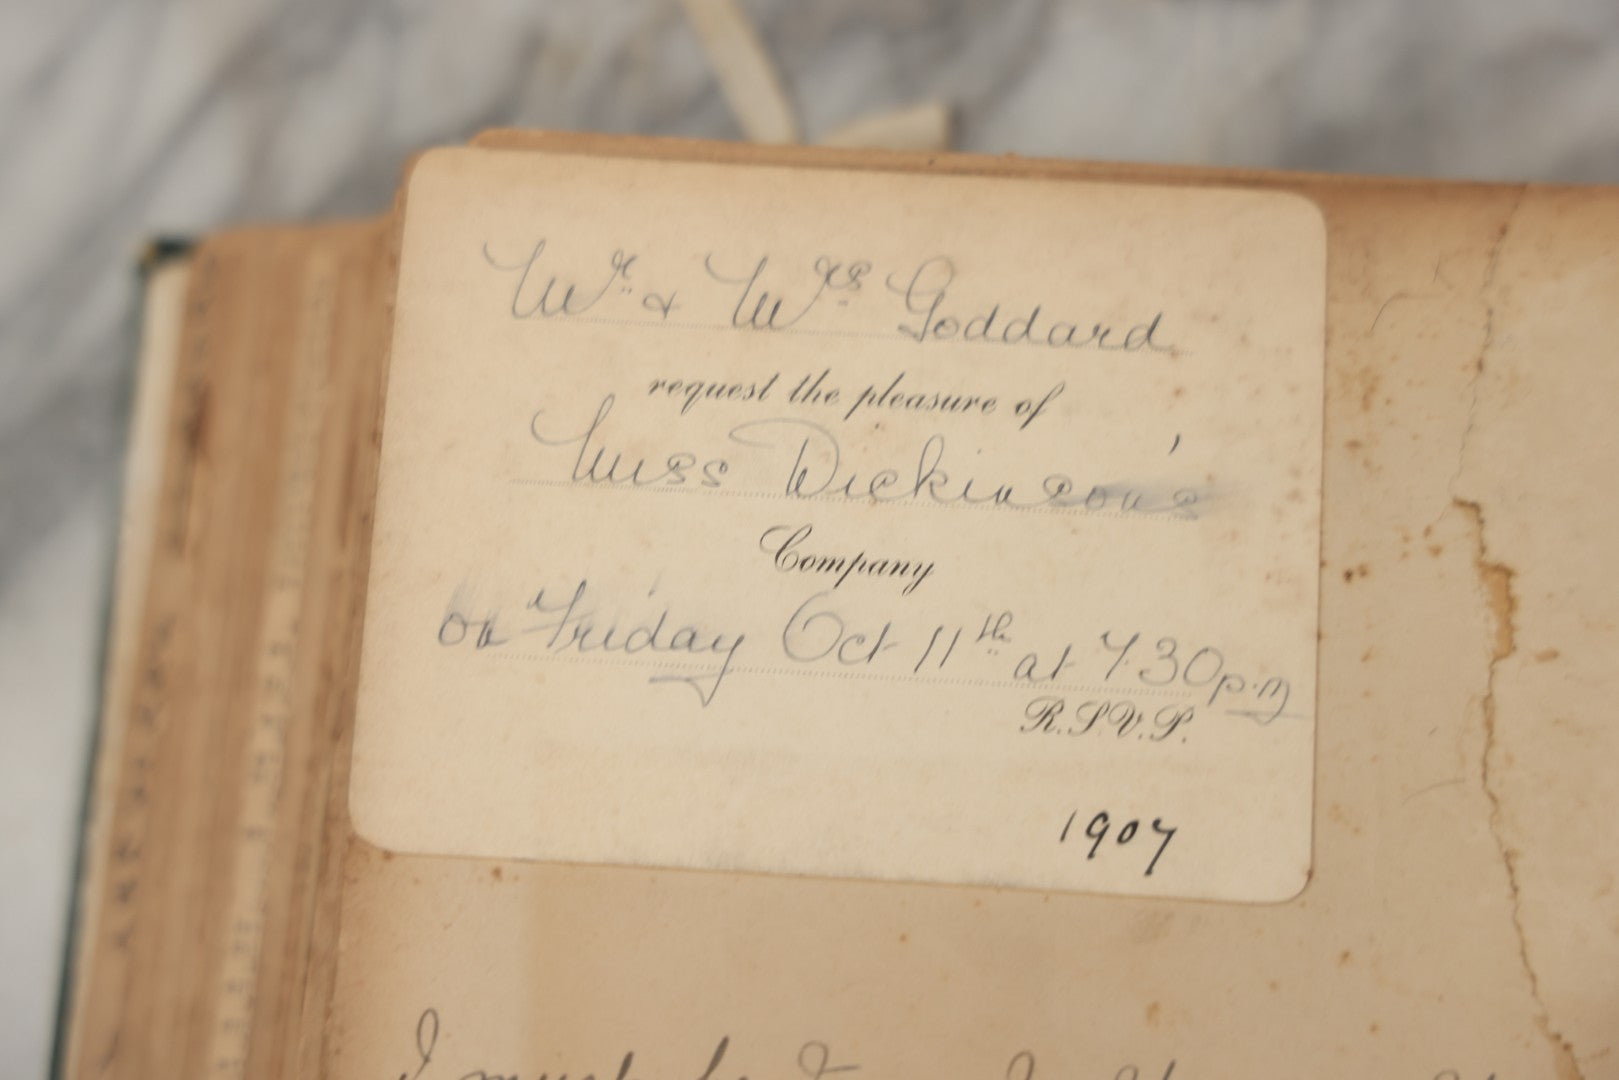 Mr. & Mrs. Goddard
request the pleasure of
Miss Dickinson's
Company
on Friday Oct 11th at 7.30 p.m
R.S.V.P.
1907
I must